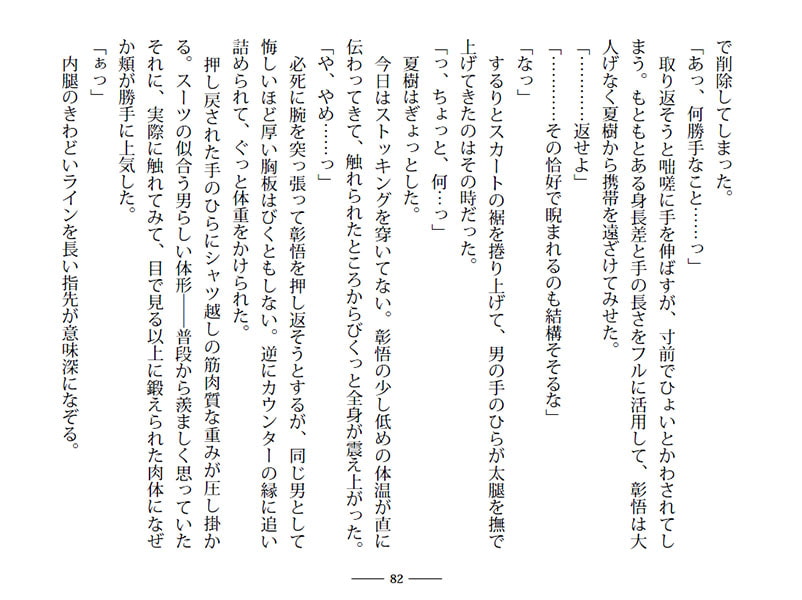 で削除してしまった。
「あっ、何勝手なこと……っ」
取り返そうと咄嗟に手を伸ばすが、寸前でひょいとかわされてし
まう。もともとある身長差と手の長さをフルに活用して、彰悟は大
人げなく夏樹から携帯を遠ざけてみせた。
「…………返せよ」
「…………その恰好で睨まれるのも結構そそるな」
「なっ」
するりとスカートの裾を捲り上げて、男の手のひらが太腿を撫で
上げてきたのはその時だった。
「っ、ちょっと、何…っ」
夏樹はぎょっとした。
今日はストッキングを穿いてない。彰悟の少し低めの体温が直に
伝わってきて、触れられたところからびくっと全身が震え上がった。
「や、やめ……っ」
必死に腕を突っ張って彰悟を押し返そうとするが、同じ男として
悔しいほど厚い胸板はびくともしない。逆にカウンターの縁に追い
詰められて、ぐっと体重をかけられた。
押し戻された手のひらにシャツ越しの筋肉質な重みが圧し掛か
る。スーツの似合う男らしい体形――普段から羨ましく思っていた
それに、実際に触れてみて、目で見る以上に鍛えられた肉体になぜ
か頬が勝手に上気した。
「ぁっ」
内腿のきわどいラインを長い指先が意味深になぞる。
82